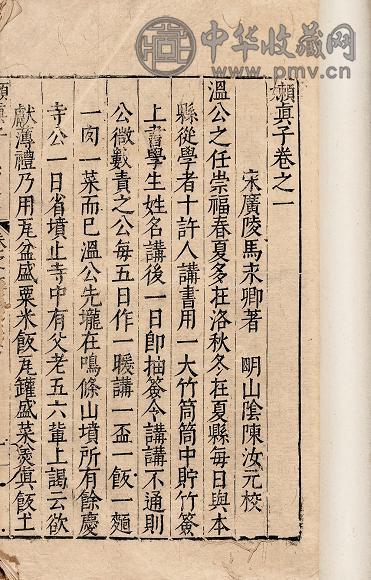 中华收藏网
www.pmv.cn
嬾眞子卷之一
宋廣陵馬永卿著　明山陰陳汝元校
溫公之任崇福春夏多在洛秋冬在夏縣每日與本
縣從學者十許人講書用一大竹筒筒中貯竹簽
上書學生姓名講後一日即抽簽令講講不通則
公微數責之公每五日作一暖講一盃一飯一麵
一肉一菜而已溫公先壠在鳴條山墳所有餘慶
寺公一日省墳止寺中有父老五六輩上謁云欲
獻薄禮乃用瓦盆盛粟米飯瓦罐盛菜羹眞飯土